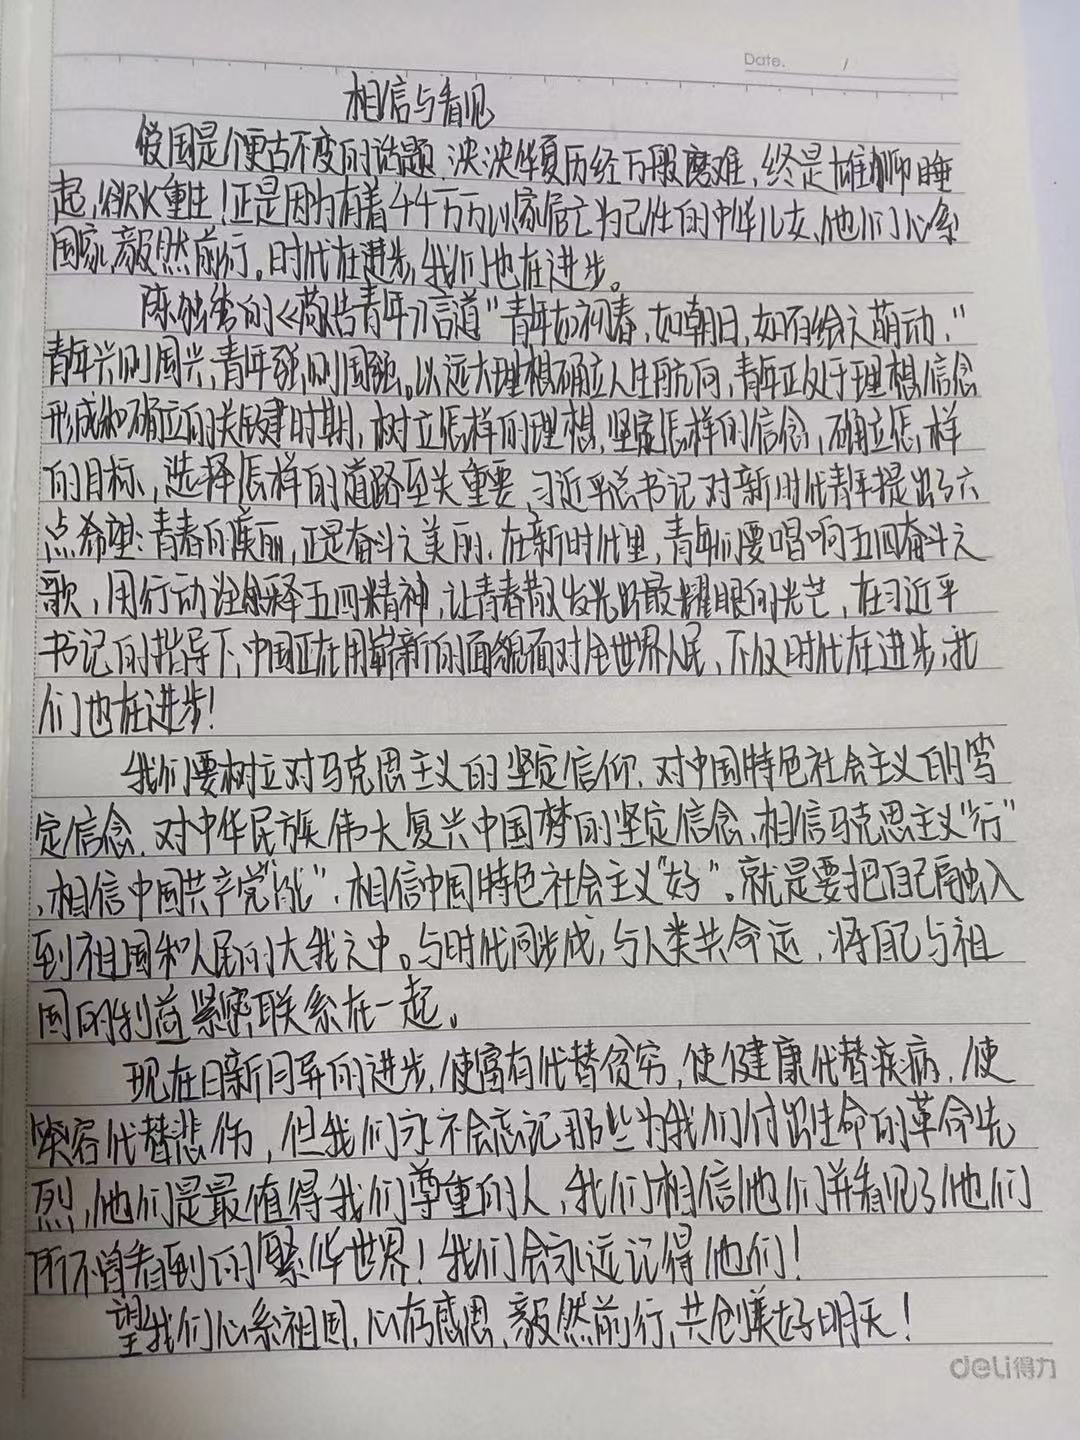 Date. /
相信与看见
爱国是个更古不变的话题,泱泱华夏历经万般磨难,终是雄狮睡
起,欲火重生!正是因为有着44万万以家居亡为己性的中华儿女,他们心系
国家,毅然前行。时代在进步,我们也在进步。
陈独秀的《敬告青年》言道"青年如初春,如朝日,如百绘之萌动,"
青年兴则国兴,青年强则国强。以远大理想确立人生航向,青年正处于理想信念
形成和确立的关键时期,树立怎样的理想,坚定怎样的信念,确立怎样
的目标,选择怎样的道路至关重要,习近平总书记对新时代青年提出了六
点希望:青春的美丽,正是奋斗之美丽.在新时代里,青年们要唱响五四奋斗之
歌,用行动诠释五四精神,让青春散发光明最耀眼的光芒,在习近平
书记的指导下,中国正在用崭新的面貌面对全世界人民,不仅时代在进步,我
们也在进步!
我们要树立对马克思主义的坚定信仰,对中国特色社会主义的笃
定信念,对中华民族伟大复兴中国梦的坚定信念,相信马克思主义"行"
,相信中国共产党"能",相信中国特色社会主义"好"。就是要把自己融入
到祖国和人民的大我之中。与时代同步成,与人类共命运,将自己与祖
国的利益紧密联系在一起。
现在日新月异的进步,使富有代替贫穷,使健康代替疾病,使
笑容代替悲伤,但我们永不会忘记那些为我们付出生命的革命先
烈,他们是最值得我们尊重的人,我们相信他们并看见了他们
所不曾看到的繁华世界!我们会永远记得他们!
望我们心系祖国,心存感恩,毅然前行,共创美好明天!
deli得力